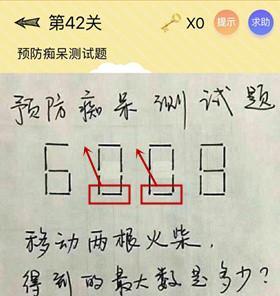 第42关 X0 提示 求助
预防痴呆测试题
预防痴呆测试题
6008
移动两根火柴，
得到的最大数是多少？